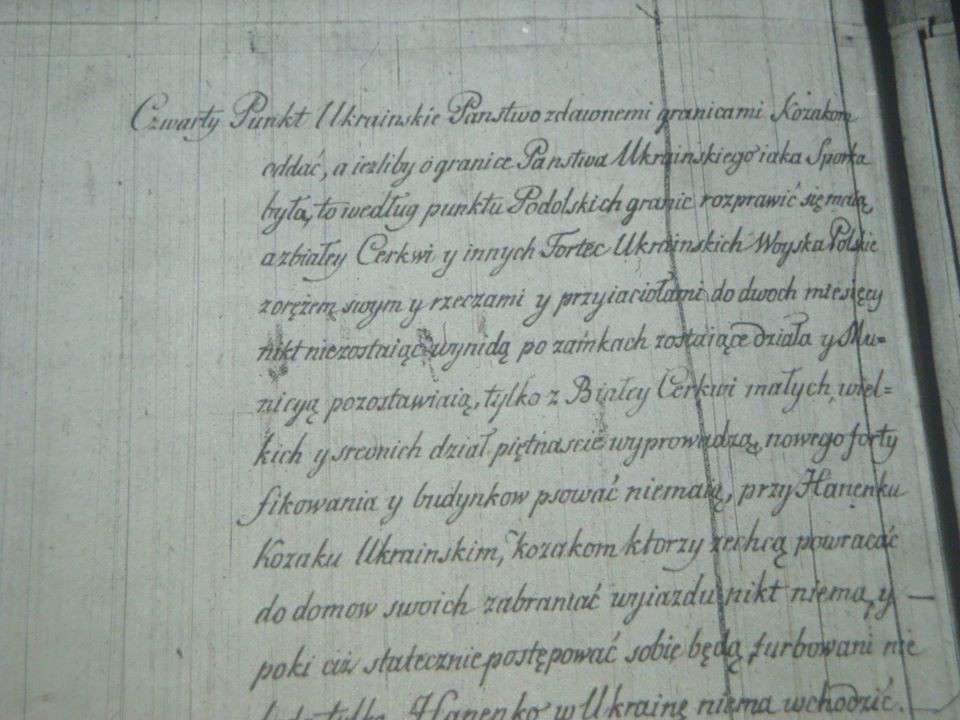 Czwarty Punkt Ukrainskie Panstwo zdawnemi granicami Kozakom
oddać, a ieżliby o granice Panstwa Ukrainskiego iaka Sporka
była, to według punktu Podolskich granic rozprawić się maią,
a zbiałey Cerkwi y innych Fortec Ukrainskich Woyska Polskie
z orężem swym y rzeczami y przyiaciołami do dwoch miesięcy
nikt niezostaiąc wynidą po zamkach zostaiące działa y Mu=
nicyą pozostawiaią, tylko z Białey Cerkwi małych, wiel=
kich y srednich dział piętnascie wyprowadzą, nowego forty
fikowania y budynkow psować niemaią, przy Hanenku
Kozaku Ukrainskim, kozakom ktorzy zechcą powracać
do domow swoich zabraniać wyiazdu nikt niema, y —
poki ciż statecznie postępować sobie będą, turbowani nie
będą tylko Hanenko w Ukrainę niema wchodzić.